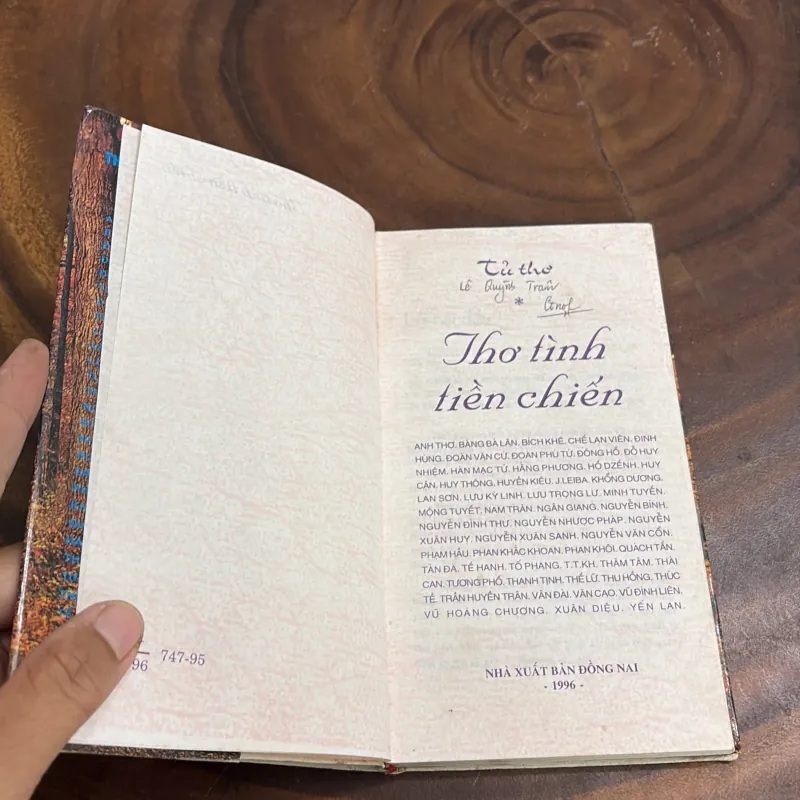 96 747-95
Tủ thơ
Lê Quỳnh Trân
*
Thơ tình
tiền chiến
ANH THƠ. BÀNG BÁ LÂN. BÍCH KHÊ. CHẾ LAN VIÊN. ĐINH
HÙNG. ĐOÀN VĂN CỪ. ĐOÀN PHÚ TỨ. ĐÔNG HỒ. ĐỖ HUY
NHIỆM. HÀN MẶC TỬ. HẰNG PHƯƠNG. HỒ DZẾNH. HUY
CẬN. HUY THÔNG. HUYỀN KIÊU. J.LEIBA. KHỔNG DƯƠNG.
LAN SƠN. LƯU KỲ LINH. LƯU TRỌNG LƯ. MINH TUYỀN.
MỘNG TUYẾT. NAM TRÂN. NGÂN GIANG. NGUYỄN BÍNH.
NGUYỄN ĐÌNH THƯ. NGUYỄN NHƯỢC PHÁP. NGUYỄN
XUÂN HUY. NGUYỄN XUÂN SANH. NGUYỄN VĂN CỔN.
PHẠM HẦU. PHAN KHẮC KHOAN. PHAN KHÔI. QUÁCH TẤN.
TẢN ĐÀ. TẾ HANH. TÔ PHANG. T.T.KH. THÂM TÂM. THÁI
CAN. TƯƠNG PHỐ. THANH TỊNH. THẾ LỮ. THU HỒNG. THÚC
TỀ. TRẦN HUYỀN TRÂN. VÂN ĐÀI. VĂN CAO. VŨ ĐÌNH LIÊN.
VŨ HOÀNG CHƯƠNG. XUÂN DIỆU. YẾN LAN.
NHÀ XUẤT BẢN ĐỒNG NAI
- 1996 -